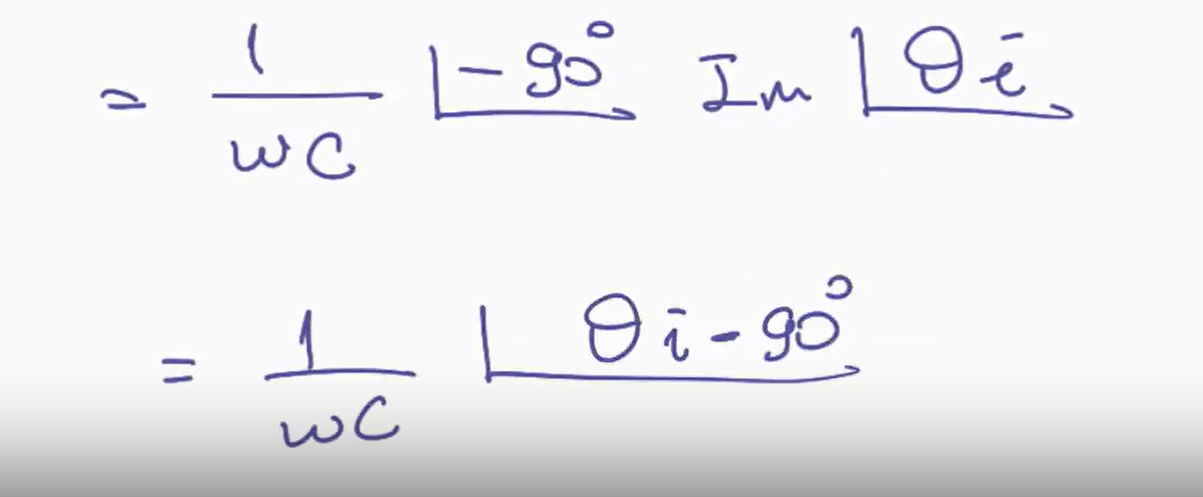 = 1/wC ∠-90° Im ∠θi
= 1/wC ∠θi-90°